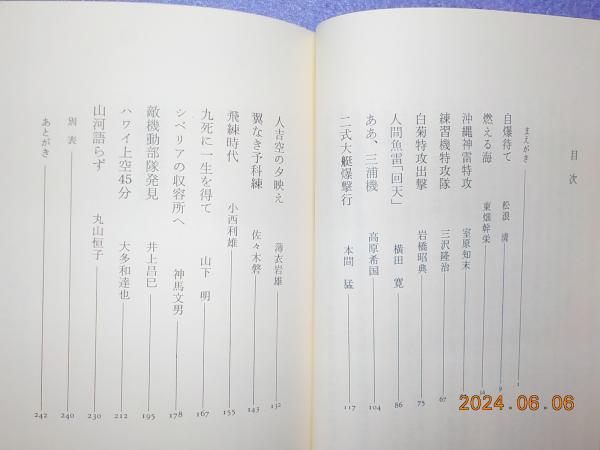 目次
まえがき 1
自爆待て 松浪 清 9
燃える海 東畑幹栄
沖縄神雷特攻 室原知末
練習機特攻隊 三沢隆治 67
白菊特攻出撃 岩橋昭典 75
人間魚雷「回天」 横田 寛 86
ああ、三浦機 高原希国 104
二式大艇爆撃行 本間 猛 117
人吉空の夕映え 薄衣岩雄 132
翼なき予科練 佐々木磐 143
飛練時代 小西利雄 155
九死に一生を得て 山下 明 167
シベリアの収容所へ 神馬文男 178
敵機動部隊発見 井上昌巳 195
ハワイ上空45分 大多和達也 212
山河語らず 丸山恒子 230
別表 240
あとがき 242
2024.06.06